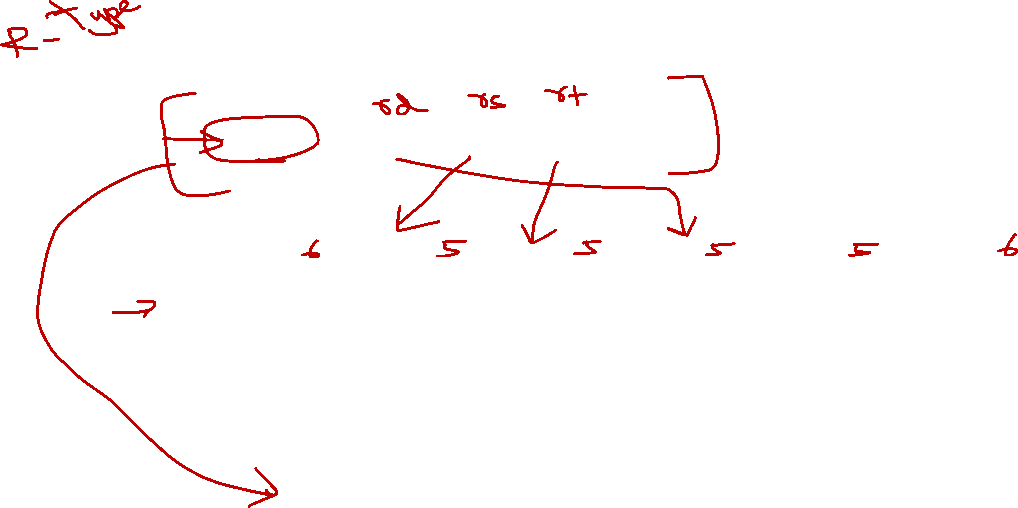 R-Type
rd rs rt
6 5 5 5 5 6